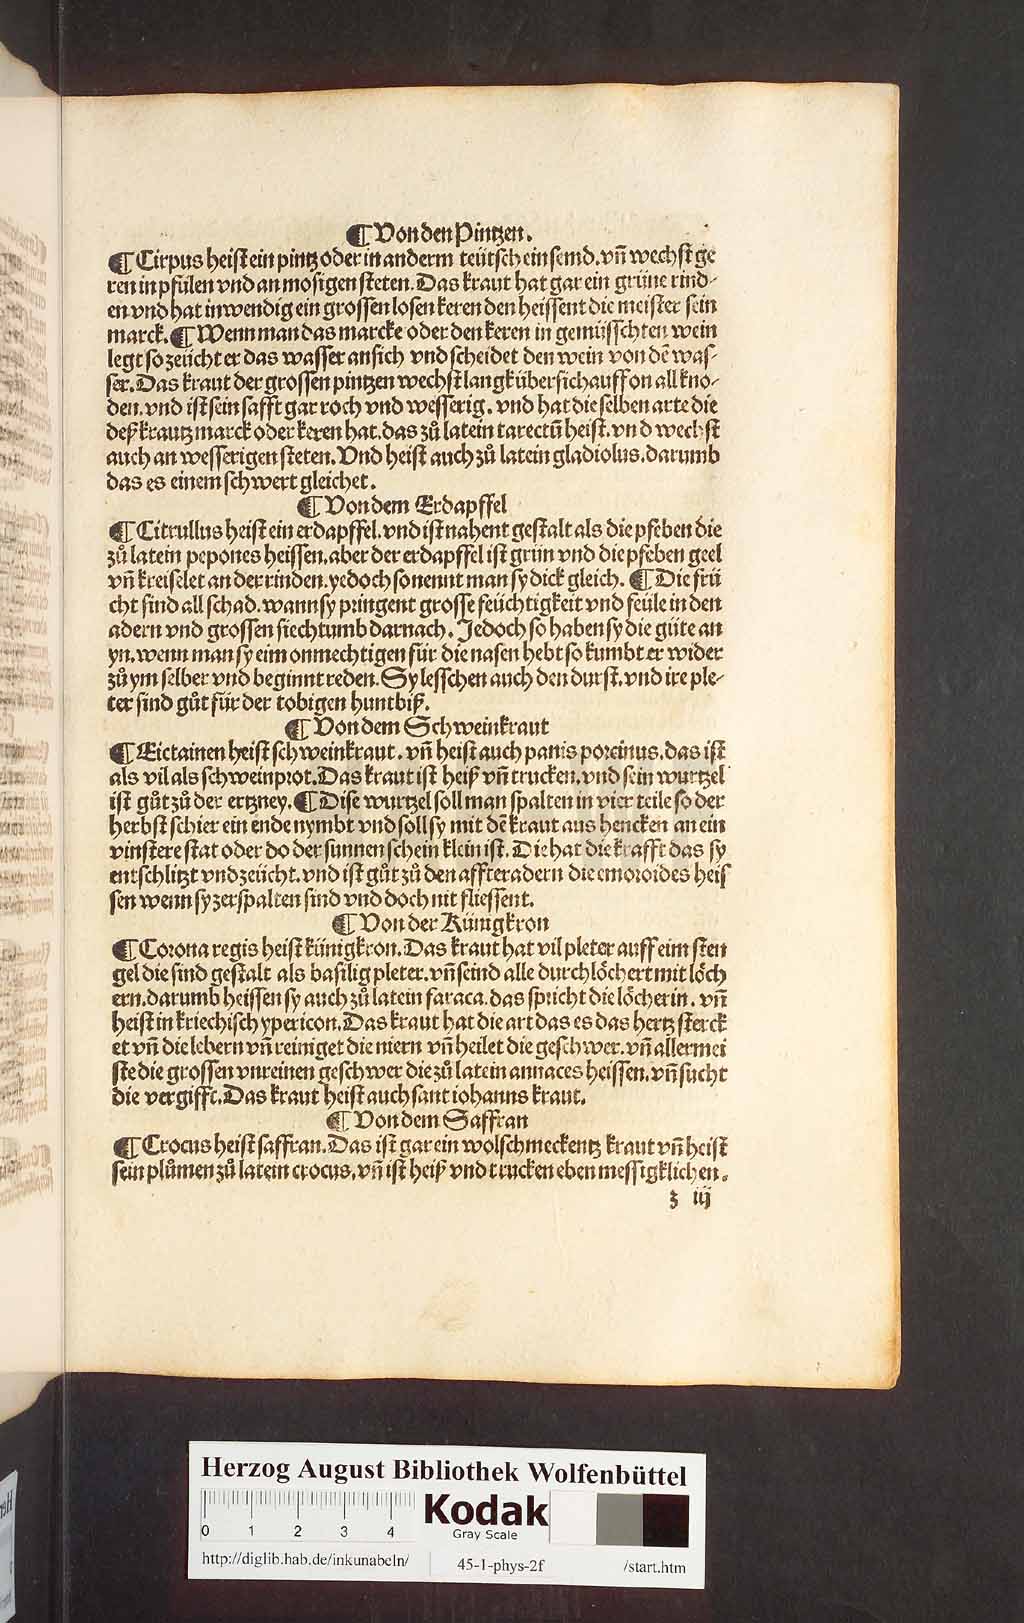 ¶ Von den Pintzen.
¶ Cirpus heist ein pintz oder in anderm teütsch ein semd. vñ wechst ge
ren in pfülen vnd an mosigen steten. Das kraut hat gar ein grüne rind-
en vnd hat inwendig ein grossen losen keren den heissent die meister sein
marck. ¶ Wenn man das marcke oder den keren in gemüsschten wein
legt so zeücht er das wasser an sich vnd scheidet den wein von dē was-
ser. Das kraut der grossen pintzen wechst langk über sich auff on all kno-
den. vnd ist sein safft gar roch vnd wesserig. vnd hat die selben arte die
deß krautz marck oder keren hat. das zů latein tarectū heist. vnd wechst
auch an wesserigen steten. Vnd heist auch zů latein gladiolus. darumb
das es einem schwert gleichet.
¶ Von dem Erdapffel
¶ Citrullus heist ein erdapffel. vnd ist nahent gestalt als die pfeben die
zů latein pepones heissen. aber der erdapffel ist grün vnd die pfeben geel
vñ kreiselet an der rinden. yedoch so nennt man sy dick gleich. ¶ Die frü
cht sind all schad. wann sy pringent grosse feüchtigkeit vnd feüle in den
adern vnd grossen siechtumb darnach. Jedoch so haben sy die güte an
yn. wenn man sy eim onmechtigen für die nasen hebt so kumbt er wider
zů ym selber vnd beginnt reden. Sy lesschen auch den durst. vnd ire ple-
ter sind gůt für der tobigen huntbiß.
¶ Von dem Schweinkraut
¶ Eictainen heist schweinkraut. vñ heist auch panis porcinus. das ist
als vil als schweinprot. Das kraut ist heiß vñ trucken. vnd sein wurtzel
ist gůt zů der ertzney. ¶ Dise wurtzel soll man spalten in vier teile so der
herbst schier ein ende nymbt vnd soll sy mit dē kraut aus hencken an ein
vinstere stat oder do der sunnen schein klein ist. Die hat die krafft das sy
entschlitzt vnd zeücht. vnd ist gůt zů den affteradern die emoroides heis
sen wenn sy zerspalten sind vnd doch nit fliessent.
¶ Von der Künigkron
¶ Corona regis heist künigkron. Das kraut hat vil pleter auff eim sten
gel die sind gestalt als basilig pleter. vñ seind alle durchlöchert mit löch
ern. darumb heissen sy auch zů latein faraca. das spricht die löcherin. vñ
heist in kriechisch ypericon. Das kraut hat die art das es das hertz sterck
et vñ die lebern vñ reiniget die niern vñ heilet die geschwer. vñ allermei
ste die grossen vnreinen geschwer die zů latein annaces heissen. vñ sucht
die vergifft. Das kraut heist auch sant iohanns kraut.
¶ Von dem Saffran
¶ Crocus heist saffran. Das ist gar ein wolschmeckentz kraut vñ heist
sein plůmen zů latein crocus. vñ ist heiß vnd trucken eben messigklichen.
z iij
Herzog August Bibliothek Wolfenbüttel
0 1 2 3 4
Kodak
Gray Scale
http://diglib.hab.de/inkunabeln/ 45-1-phys-2f /start.htm